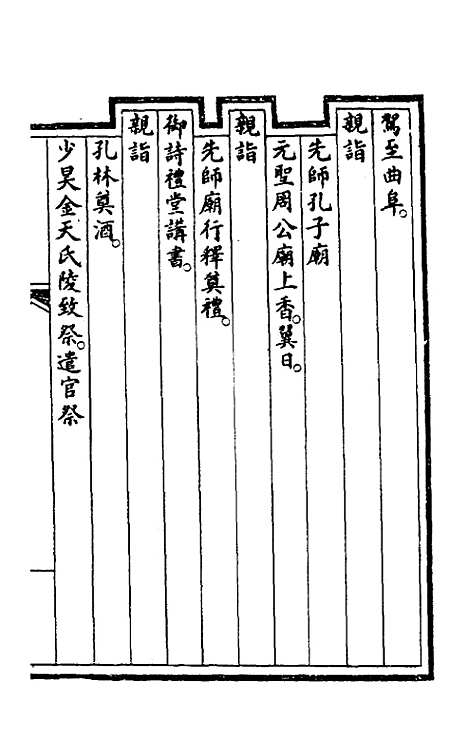 駕至曲阜。
親詣
先師孔子廟
元聖周公廟上香。翼日。
親詣
先師廟行釋奠禮。
御詩禮堂講書。
親詣
孔林奠酒。
少昊金天氏陵致祭。遣官祭